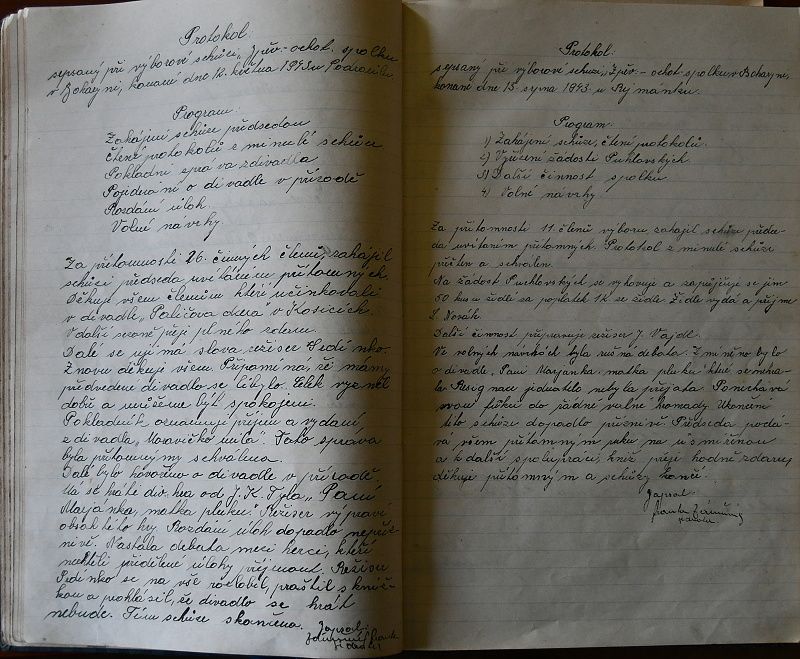 Protokol
sepsaný při výborové schůzi, Zpěv.-ochot. spolku
v Bohayni, konaní dne 12. května 1943 u
Program:
Zahájení schůze předsedou
čtení protokolů z minulé schůze
Pokladní zpráva z divadla
Pojednání o divadle v přírodě
Rozdání úloh.
Volné návrhy.
Za přítomnosti 26. činných členů, zahájil
schůzi předseda uvítáním přítomných.
Děkuje všem členům kteří účinkovali
v divadle, "Paličova dcera" v Kosicích.
V další sezoně přeji plného zdaru.
Dále se ujímá slova režiser Hedinko.
Znovu děkuje všem. Připomíná, že námi
předvedené divadlo se líbilo. Efek vyzněl
dobře a můžeme být spokojeni.
Pokladník oznamuje příjem a vydaní
z divadla, "Moravičko milá". Tato správa
byla přítomnými schválena.
Dále bylo hovořeno o divadle v přírodě
Má se hráti div. hra od J. K. Tyla, "Paní
Marjánka, matka pluku". Režiser vypraví
obsah této hry. Rozdání úloh dopadlo nepříz-
nivě. Nastala debata mezi herci, kteří
nechtěli přidělené úlohy přijmout. Režiser
Hedinko se na vše rozzlobil, praštil s kníž-
kou a prohlásil, že divadlo se hrát
nebude. Tím schůze skončena.
Zapsal:
Protokol:
sepsaný při výborové schůzi, Zpěv.-ochot. spolku, v Bohayni,
konané dne 15 srpna 1943 u Rymánku.
Program:
1) Zahájení schůze, čtení protokolů.
2) Vyřízení žádosti Puchlovských
3) Další činnost spolku
4) Volné návrhy.
Za přítomnosti 11. členů výboru, zahájil schůzi předse-
da uvítáním přítomných. Protokol z minulé schůze
přečten a schválen.
Na žádost Puchlovských se vyhovuje a zapůjčuje se jim
50 kusů židlí za poplatek 1K se židle. Židle vydá a příjme
J. Novák.
Další činnost připravuje režiser J. Vajdl.
Ve volných návrhách byla rušná debata. Zmíněno bylo
o divadle, Paní Marjanka matka pluku které se nehrá-
lo. Resignace jednatele nebyla přijata. Ponechává
svou funkci do řádné valné hromady. Ukončení
této schůze dopadlo příznivě. Předseda podá-
vá všem přítomným ruku na usmířenou
a k další spolupráci, k níž přeje hodně zdaru,
děkuje přítomným a schůzi končí.
Zapsal: